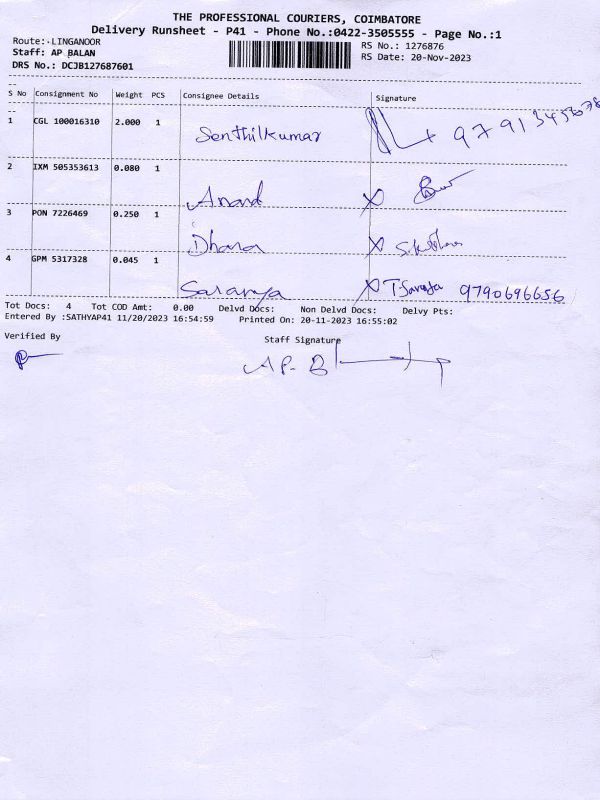 THE PROFESSIONAL COURIERS, COIMBATORE
Delivery Runsheet - P41 - Phone No.:0422-3505555 - Page No.:1
Route:-LINGANOOR
RS No.: 1276876
Staff: AP BALAN
RS Date: 20-Nov-2023
DRS No.: DCJB127687601
S No Consignment No Weight PCS Consignee Details Signature
1 CGL 100016310 2.000 1 Senthilkumar
2 IXM 505353613 0.080 1 Anand
3 PON 7226469 0.250 1 Dhana
4 GPM 5317328 0.045 1 Saranya T Saranya 9790696656
Tot Docs: 4 Tot COD Amt: 0.00 Delvd Docs: Non Delvd Docs: Delvy Pts:
Entered By :SATHYAP41 11/20/2023 16:54:59 Printed On: 20-11-2023 16:55:02
Verified By
Staff Signature
AP. B